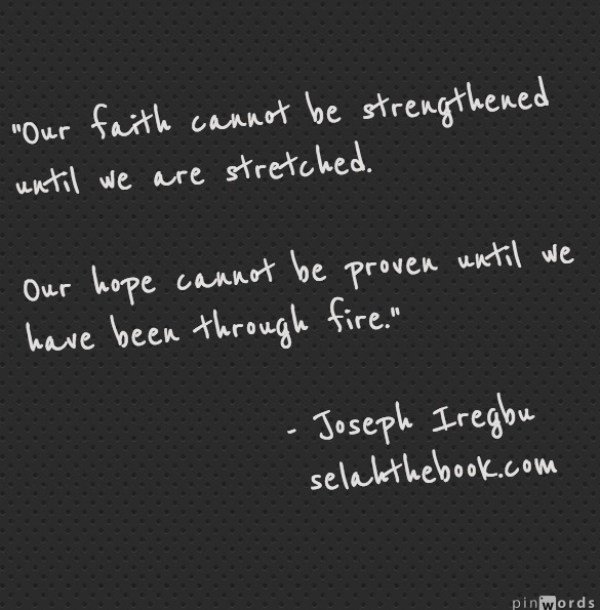 "Our faith cannot be strengthened
until we are stretched.
Our hope cannot be proven until we
have been through fire."
- Joseph Iregbu
selahthebook.com
pinwords